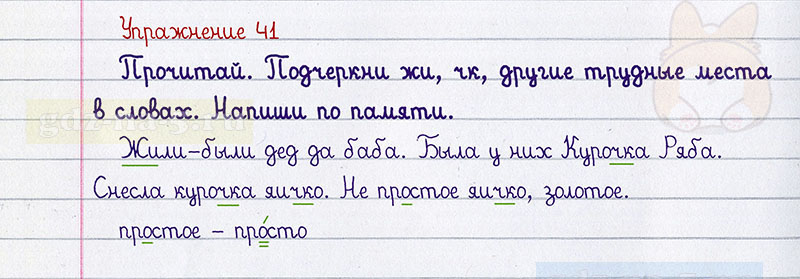 Упражнение 41
Прочитай. Подчеркни жи, чк, другие трудные места
в словах. Напиши по памяти.
Жили-были дед да баба. Была у них Курочка Ряба.
Снесла курочка яичко. Не простое яичко, золотое.
простое – про́сто